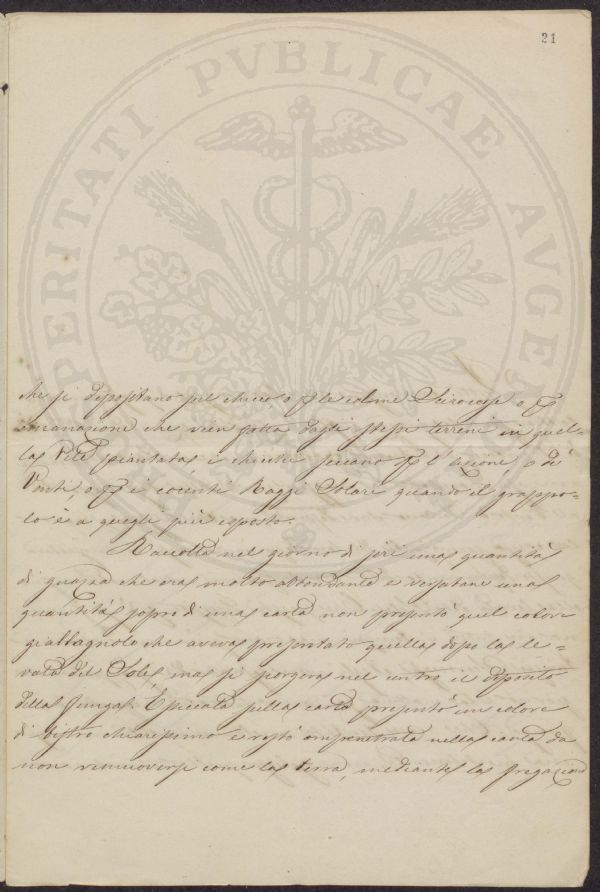 21
PERITATI PVBLICAE AVGE
che si depositano sul chicco, o p le calme Scirocose o p
emanazione che vien fatta dagli stessi terreni in quel-
la Vite piantata, i chicchi seccano p l' azione di
Venti, o p i cocenti Raggi Solari quando il grappo-
lo è a quegli più esposto.
Raccolta nel giorno di jeri una quantità
di guazza che era molto abbondante e versatane una
quantità sopra di una carta non presentò quel colore
giallagnolo che aveva presentato quella dopo la le-
vata del Sole, ma si scorgeva nel centro il deposito
della funga. Essiccata sulla carta presentò un colore
di bistro chiarissimo e restò compenetrata nella carta da
non rimuoversi come la terra, mediante la fregazione